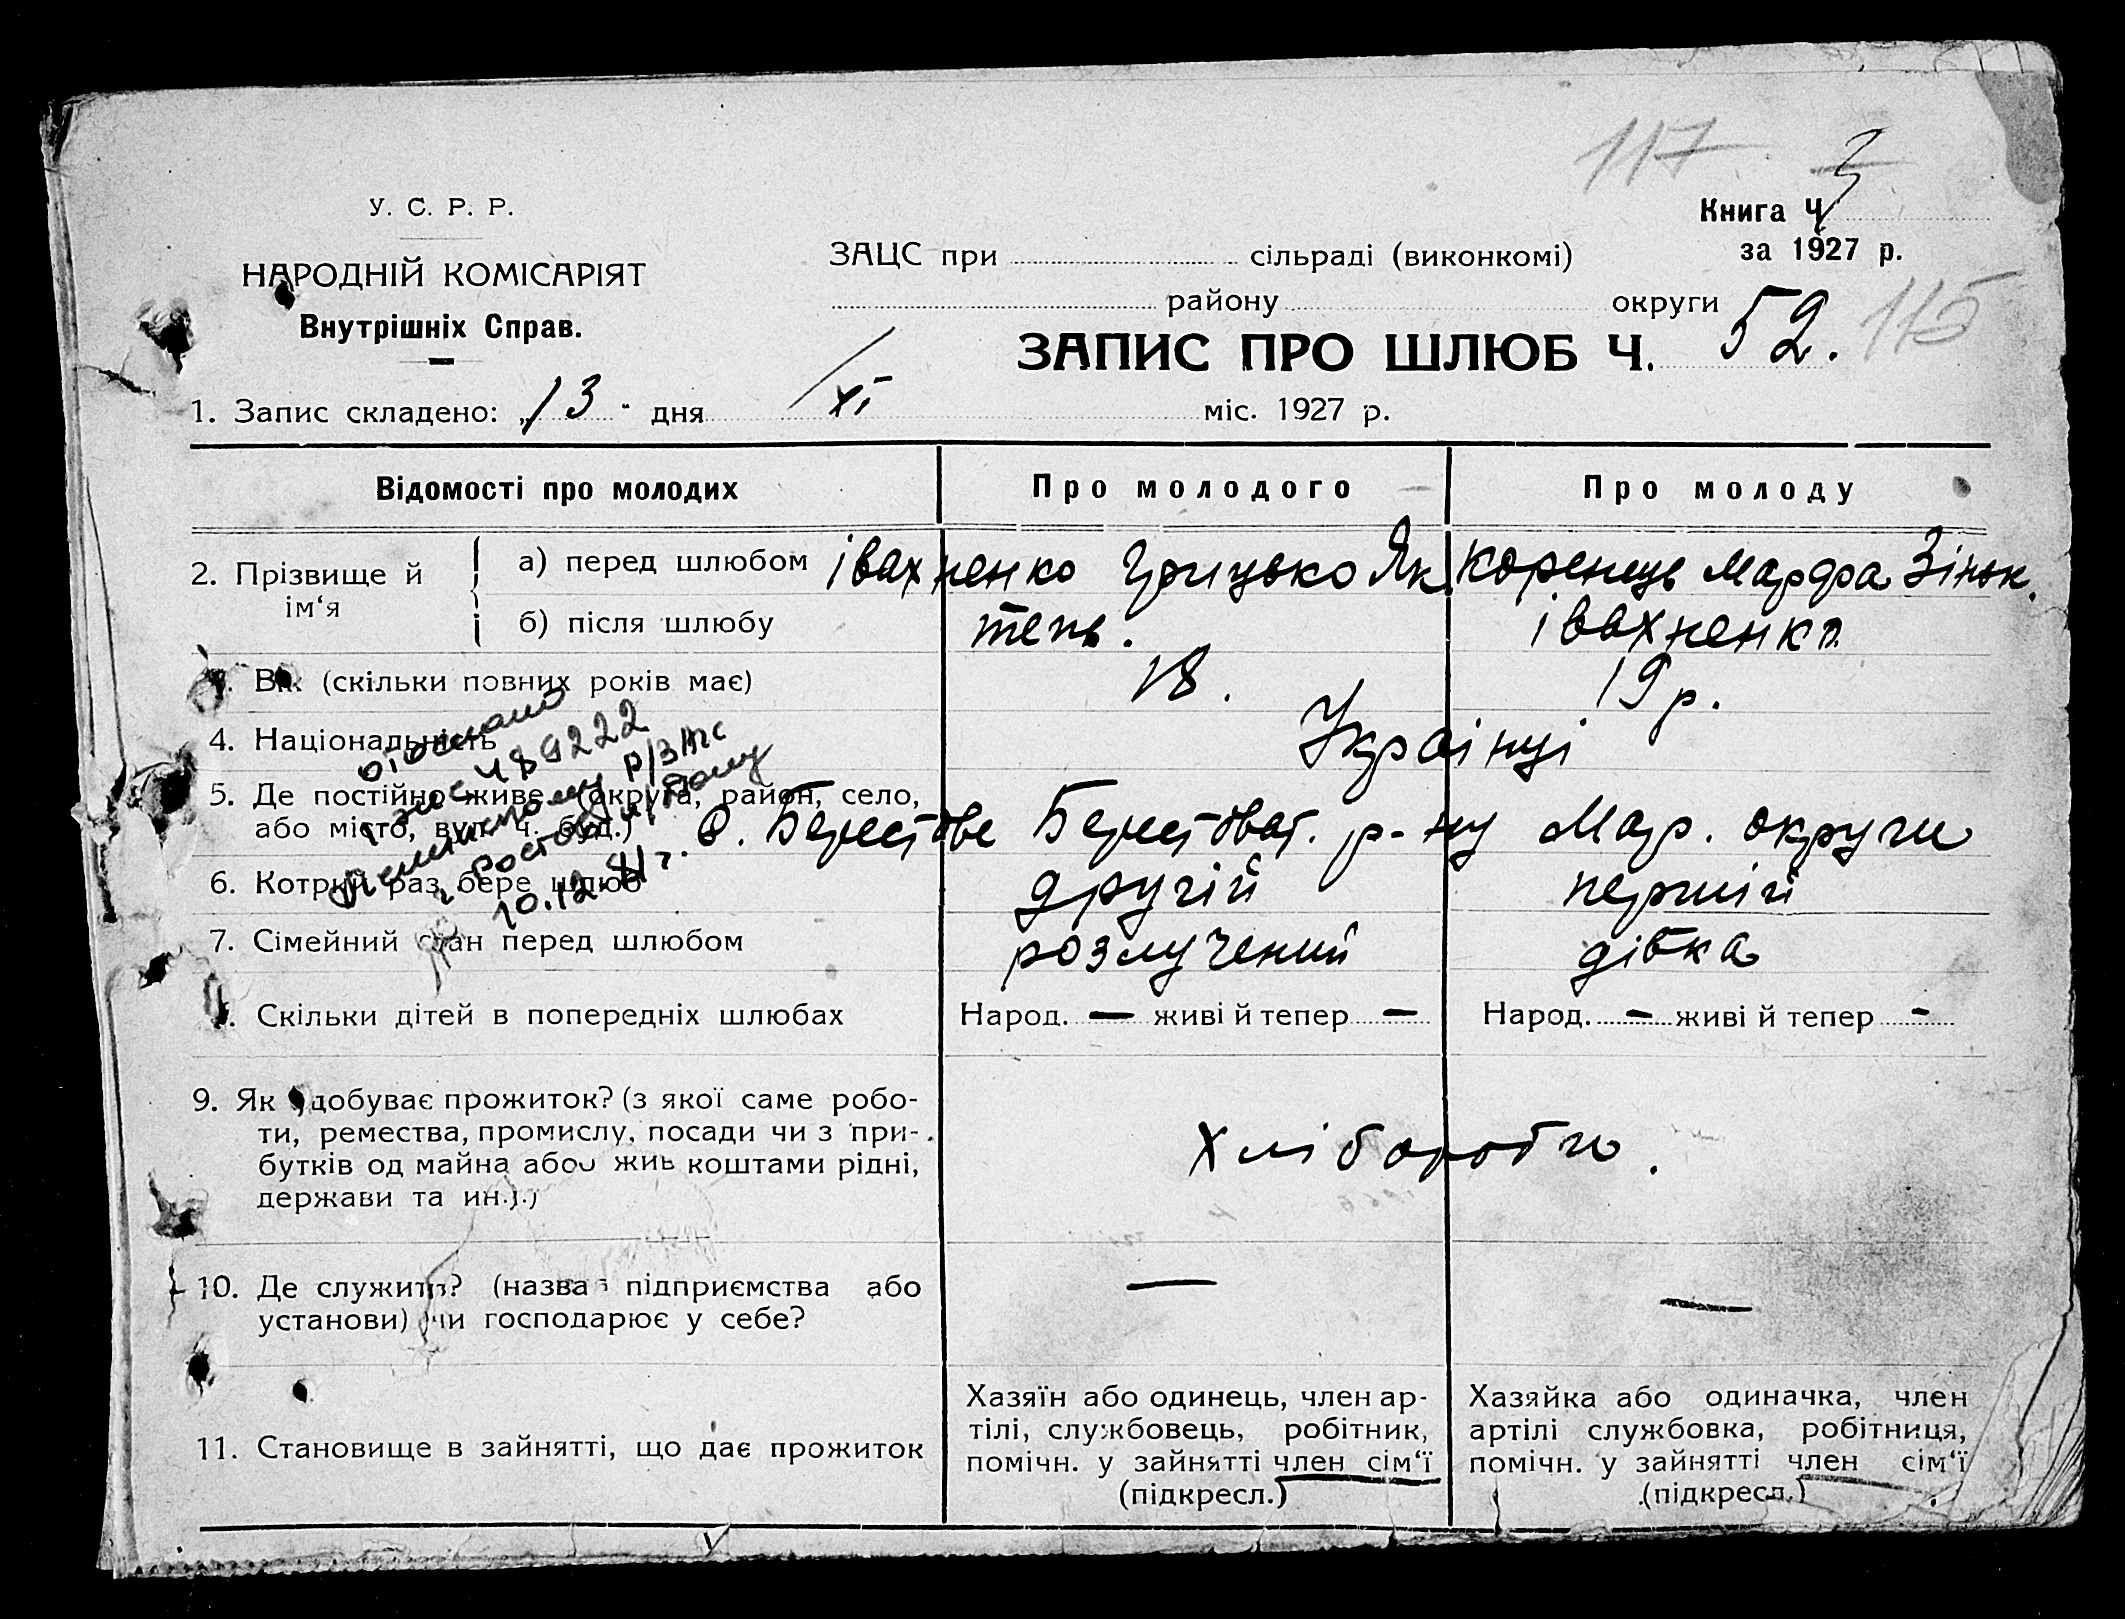 117
У. С. Р. Р.
Книга Ч
за 1927 р.
НАРОДНІЙ КОМІСАРІЯТ
Внутрішніх Справ.
ЗАЦС при сільраді (виконкомі)
району округи
ЗАПИС ПРО ШЛЮБ Ч. 52. 115
1. Запис складено: „13" дня XI міс. 1927 р.
Відомості про молодих Про молодого Про молоду
2. Прізвище й ім‘я
а) перед шлюбом Івахненко Грицько Як. Коренець Марфа Зіньк.
б) після шлюбу тепь. Івахненко
3. Вік (скільки повних років має) 18. 19 р.
4. Національність Украінці
5. Де постійно живе (округа, район, село,
або місто, вул. ч. буд.) с. Берестове Берестоват. р-ну Мар. округи
6. Котрий раз бере шлюб другій першій
7. Сімейний стан перед шлюбом розлучений дівка
489222
10.12.
8. Скільки дітей в попередніх шлюбах Народ. — живі й тепер — Народ. — живі й тепер -
9. Як здобуває прожиток? (з якої саме робо-
ти, ремества, промислу, посади чи з при-
бутків од майна або живе коштами рідні,
держави та ин.).
Хлібороби.
10. Де служить? (назва підприємства або —
установи) чи господарює у себе? —
11. Становище в зайнятті, що дає прожиток
Хазяїн або одинець, член ар-
тілі, службовець, робітник,
помічн. у зайнятті член сім‘ї
(підкресл.)
Хазяйка або одиначка, член
артілі службовка, робітниця,
помічн. у зайнятті член сім‘ї
(підкресл.)